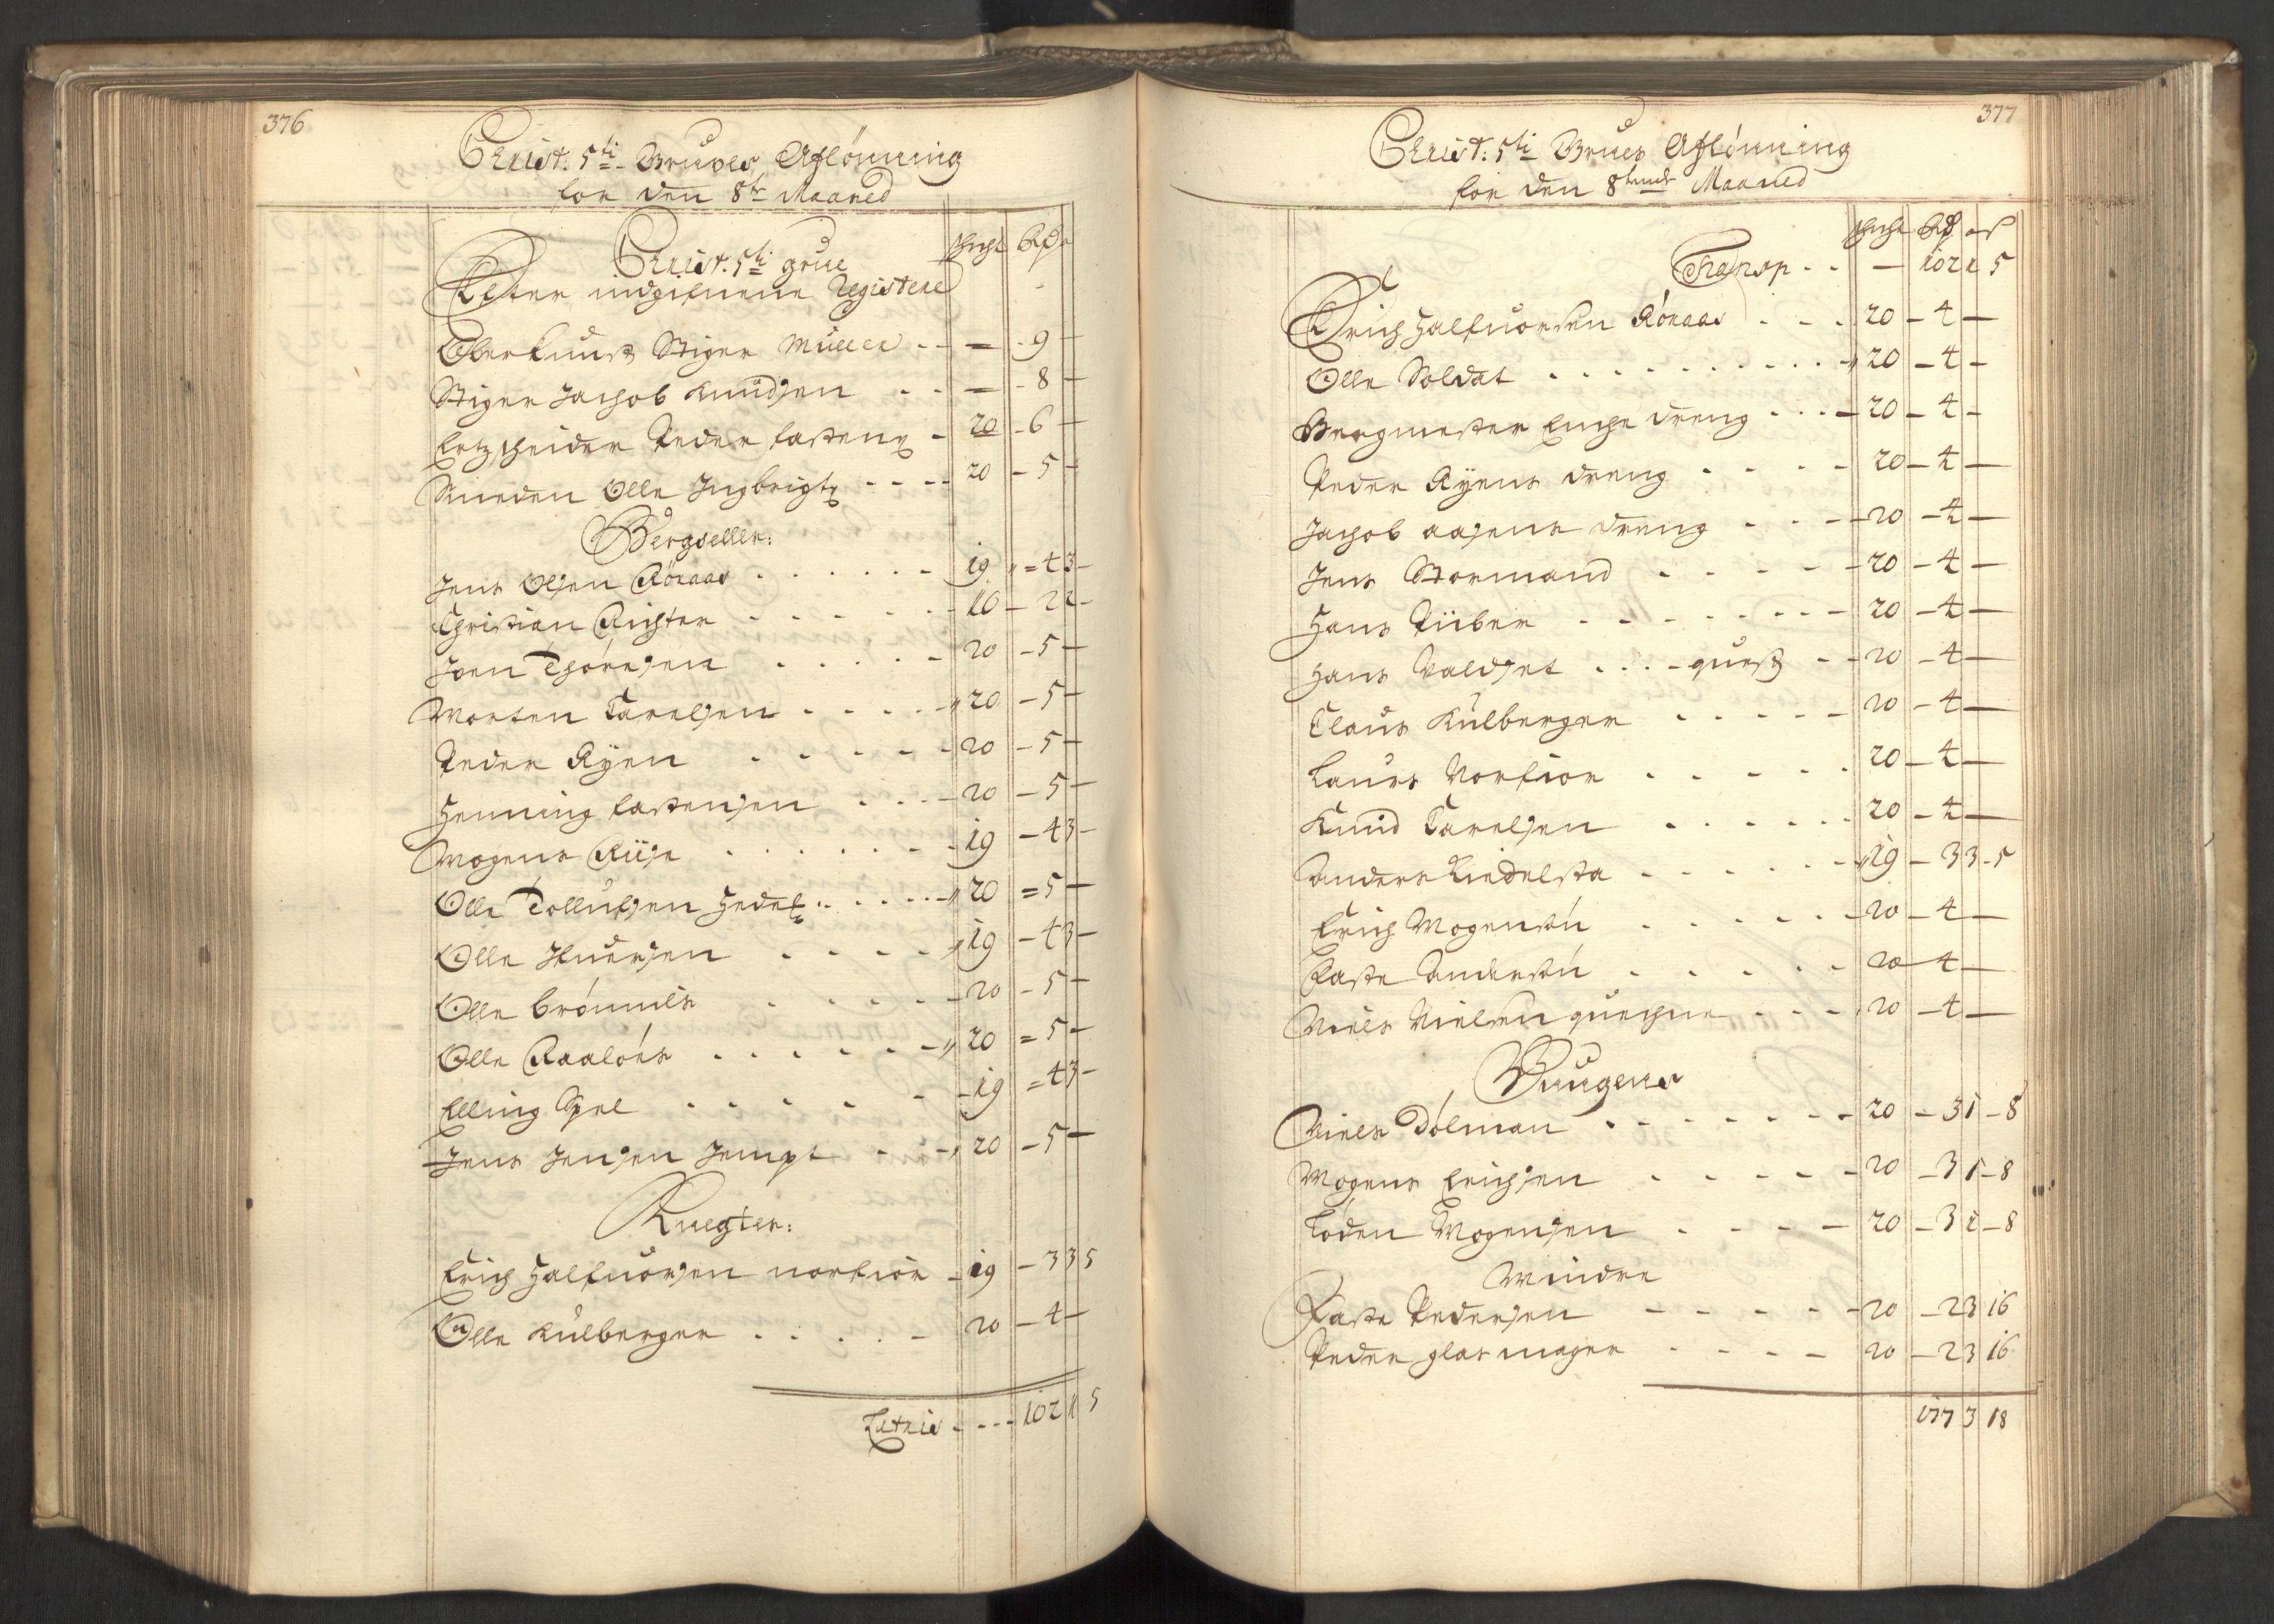 376
Christ: 5ti Gruves Aflönning
for den 8de Maaned
Schicht Rdr
Christ. 5ti grue
Efter indgifuene Registere
Oberkunst Stiger Müller - - 9 -
Stiger Jachob Knudsen - - 8 -
Ertzscheider Peder Fasteng - 20 - 6 -
Smeden Olle Ingbrigts - - - - 20 - 5 -
Bergseller:
Jens Olsen Röraas - - - 19 - 4 3 -
Christian Richter - - - 10 - 2 2 -
Joen Thöresen - - - 20 - 5 -
Morten Carelsen - - - 20 - 5 -
Peder Ryen - - - 20 - 5 -
Henning Fastensen - - - 20 - 5 -
Mogens Riise - - - 19 - 4 3 -
Olle Tollufsen Hedels - - - 20 = 5 -
Olle Ifuersen - - - 19 - 4 3 -
Olle Brömmels - - - 20 - 5 -
Olle Raaloes - - - 20 = 5 -
Elling Spel - - - 19 = 4 3 -
Jens Jensen Jempt - - 20 - 5 -
Knegter:
Erich Halfuorsen norfior - 19 - 3 3 5
Olle Külberger - - - 20 - 4 -
Latris - - - 102 1 5
377
Christ: 5ti Grues Aflönning
for den 8tende Maaned
Schicht Rdr ort ß
Transp - - 102 1 5
Erich Halfuorsen Röraas - - - 20 - 4 -
Olle Soldat - - - 20 - 4 -
Bergmester Enche dreng - - - 20 - 4 -
Peder Ryens dreng - - - 20 - 4 -
Jachob aasens dreng - - - 20 - 4 -
Jens Stormand - - - 20 - 4 -
Hans Tüber - - - 20 - 4 -
Hans Valdset - - - - - 20 - 4 -
Claus Külberger - - - 20 - 4 -
Laurs Norfior - - - 20 - 4 -
Knud Carelsen - - - 20 - 4 -
Anders Kiedelsta - - - 19 - 3 3 - 5
Erich Mogensön - - - 20 - 4 -
Faste Andersön - - - 20 - 4 -
Niels Nielsen - - - 20 - 4 -
Vaugens
Niels Dolman - - - 20 - 3 1 - 8
Mogens Erichsen - - - 20 - 3 1 - 8
Loden Mogensen - - - 20 - 3 1 - 8
Mindre
Faste Pedersen - - - 20 - 2 3 16
Peder glasmager - - - 20 - 2 3 16
177 3 18